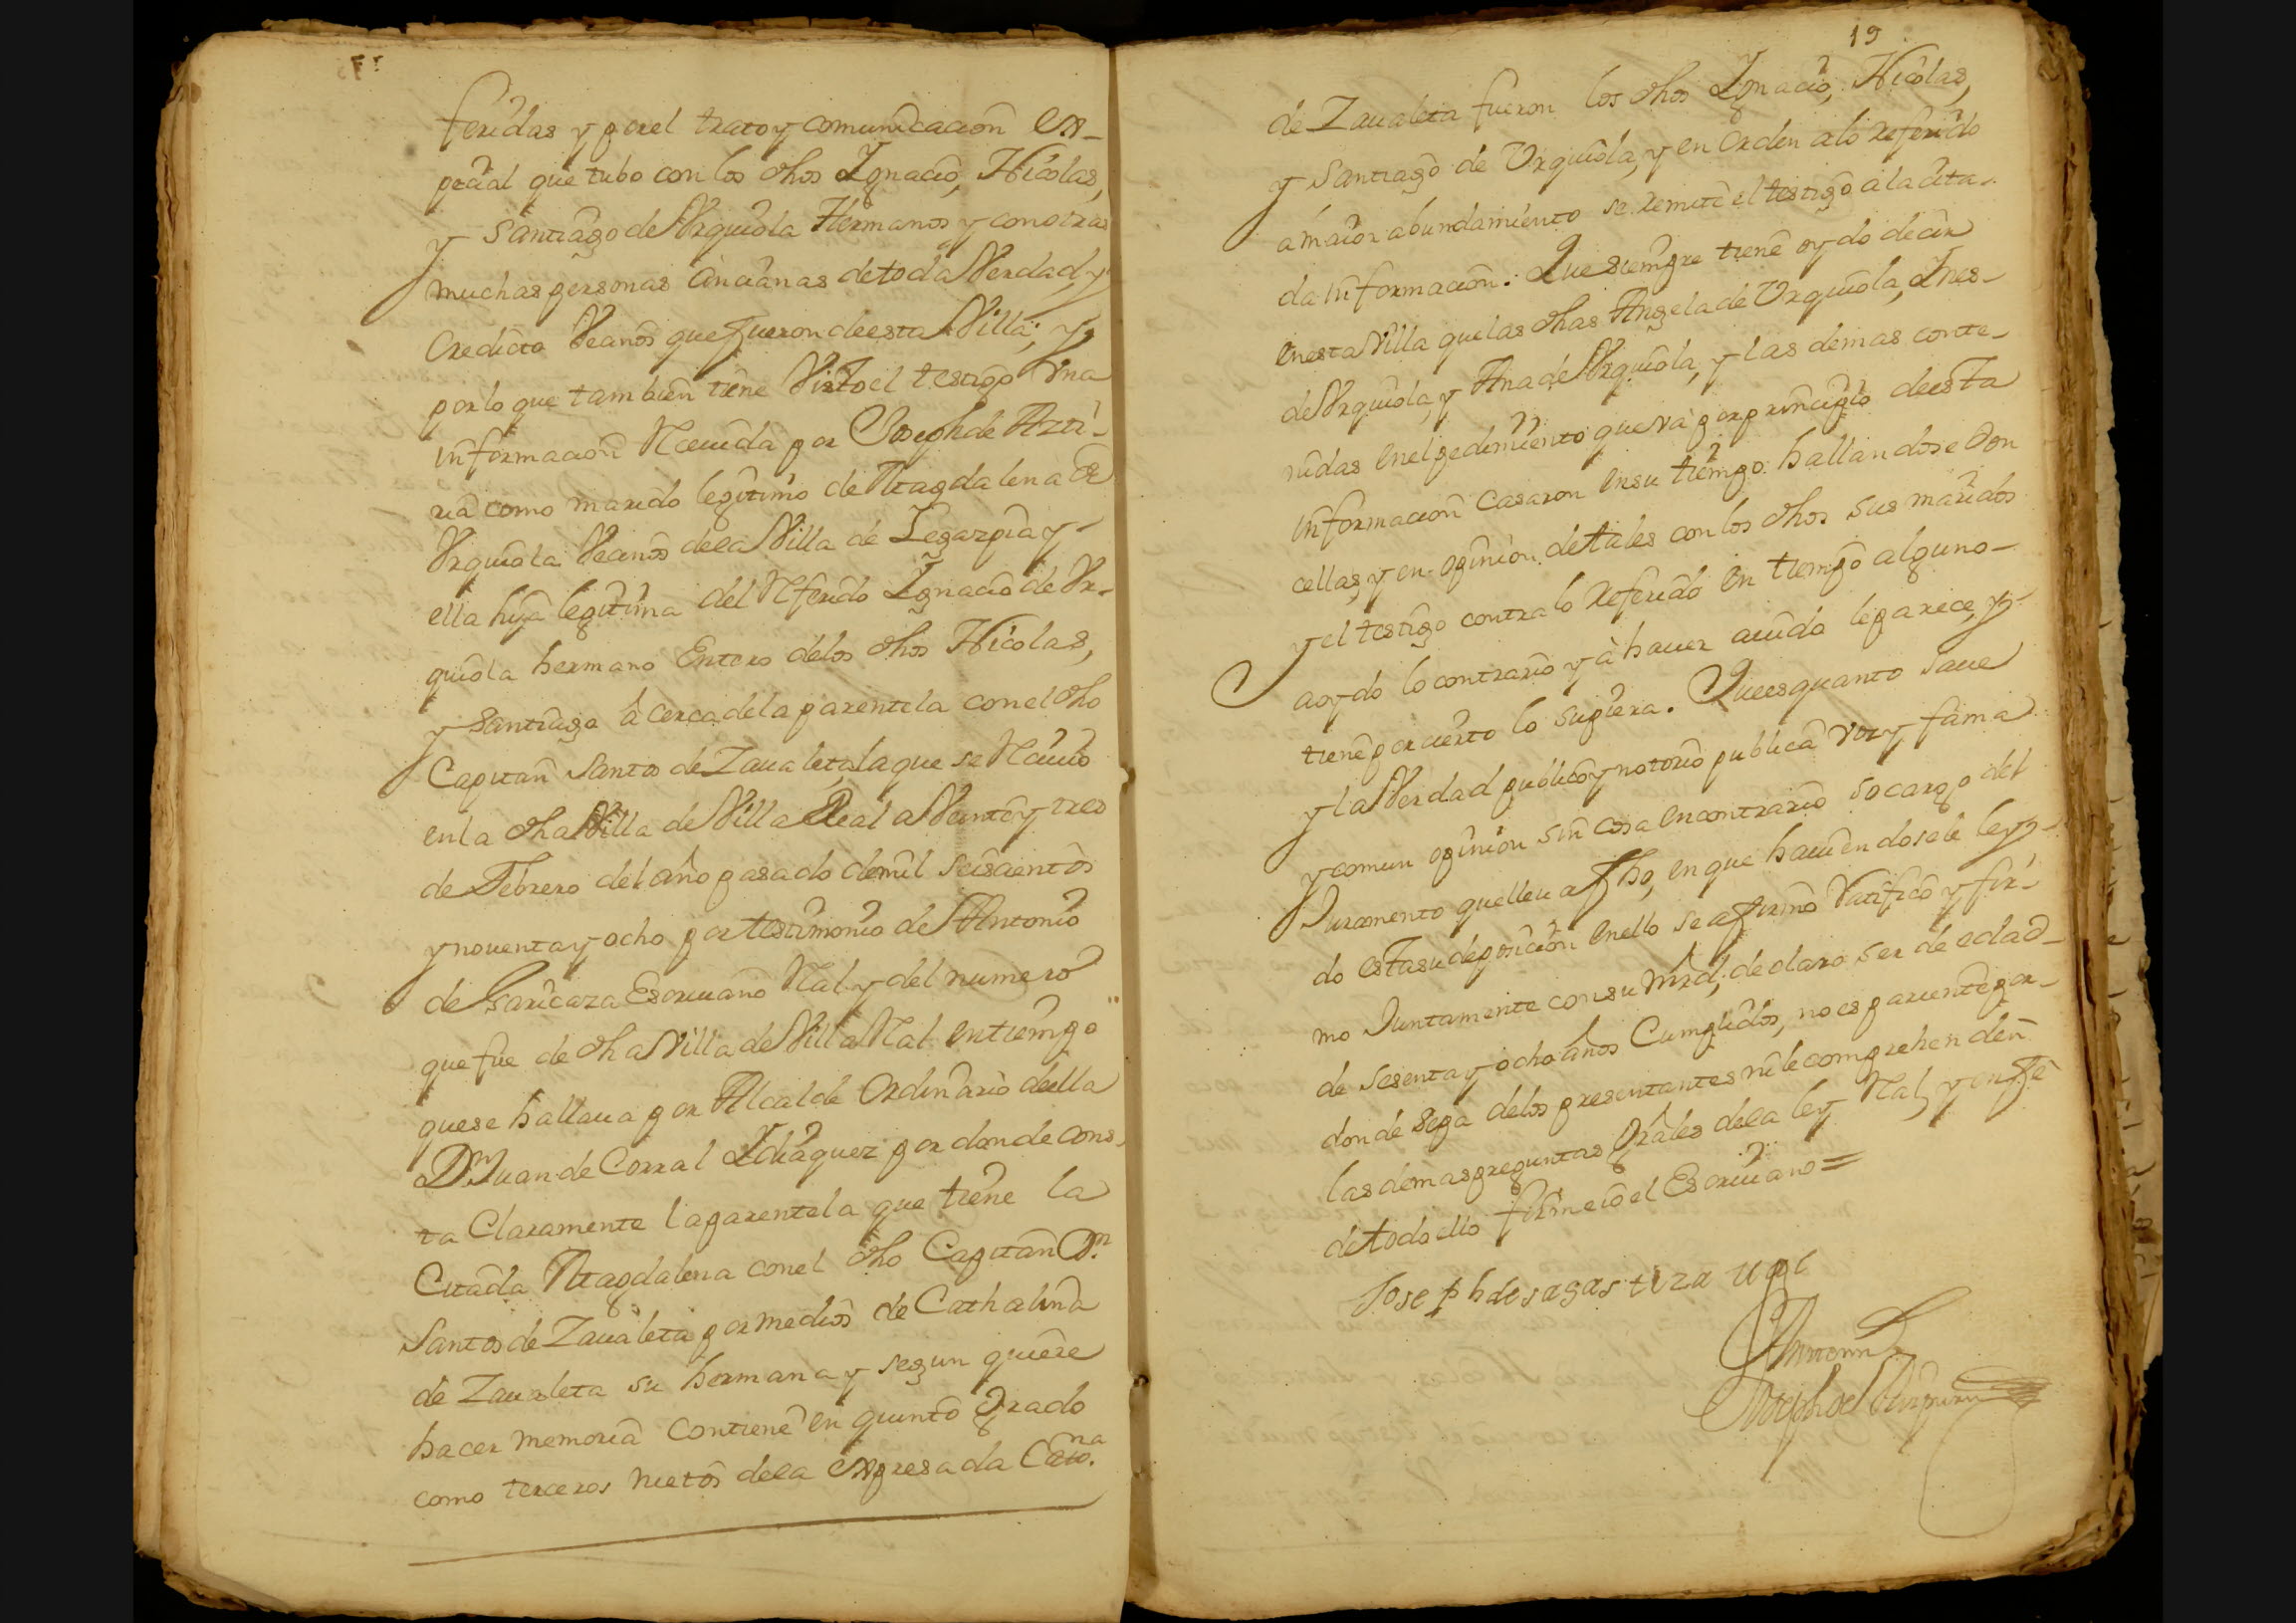 feridas y por el trato y comunicacion es-
pecial que tubo con los dhos Ygnacio, Nicolas,
y Santiago de Vrquiola Hermanos y con otras
muchas personas ancianas de toda Verdad, y
Credicto Vecinos que fueron de esta Villa; y
por lo que tambien tiene Visto el testigo Vna
informacion Receuida por Joseph de Arti-
ria como marido legitimo de Magdalena de
Vrquiola Vecinos de la Villa de Legazpia y
ella hija legitima del Referido Ygnacio de Vr-
quiola hermano Entero de los dhos Nicolas,
y Santiago a cerca de la parentela con el dho
Capitan Santos de Zaualeta, la que se Reciuio
en la dha Villa de Villa Real a Veinte y tres
de Febrero del año pasado de mil seiscientos
y nouenta y ocho por testimonio de Antonio
de Gariçaza Escriuano Real y del numero
que fue de dha Villa de Villa Real en tiempo
que se hallaua por Alcalde Ordinario de ella
Dn Juan de Corral Ydiaquez por donde cons-
ta Claramente la parentela que tiene la
Citada Magdalena con el dho Capitan Dn
Santos de Zaualeta por medios de Cathalina
de Zaualeta su hermana y segun quiere
hacer memoria Contiene en quinto grado
como terceros nietos de la expresada Catna.
19
de Zaualeta fueron los dhos Ygnacio, Nicolas,
y Santiago de Vrquiola, y en Orden a lo referido
a maior abundamiento se remite el testigo a la cita-
da informacion. Que siempre tiene oydo decir
en esta Villa que las dhas Angela de Vrquiola, Ynes-
de Vrquiola, y Ana de Vrquiola, y las demas conte-
nidas en el pedimiento que va por principio de esta
informacion Casaron en su tiempo hallandose Don
cellas, y en opinion de tales con los dhos sus maridos
y el testigo contra lo referido en tiempo alguno-
a oydo lo contrario y à hauer auido le parece, y
tiene por cierto lo supiera. Que es quanto saue
y la Verdad publico y notorio publica voz y fama
y comun opinion sin cosa en contrario so cargo del
Juramento que lleua fho, en que hauiendosele ley-
do esta su deposicion en ello se afirmo Ratifico y fir-
mo Juntamente con su mrd, declaro ser de edad-
de sesenta y ocho años Cumplidos, no es pariente por-
donde sepa de los presentantes ni le comprehenden
las demas preguntas Grales de la ley Real, y en fe
de todo ello firme io el Escriuano =
Joseph de sagastiza